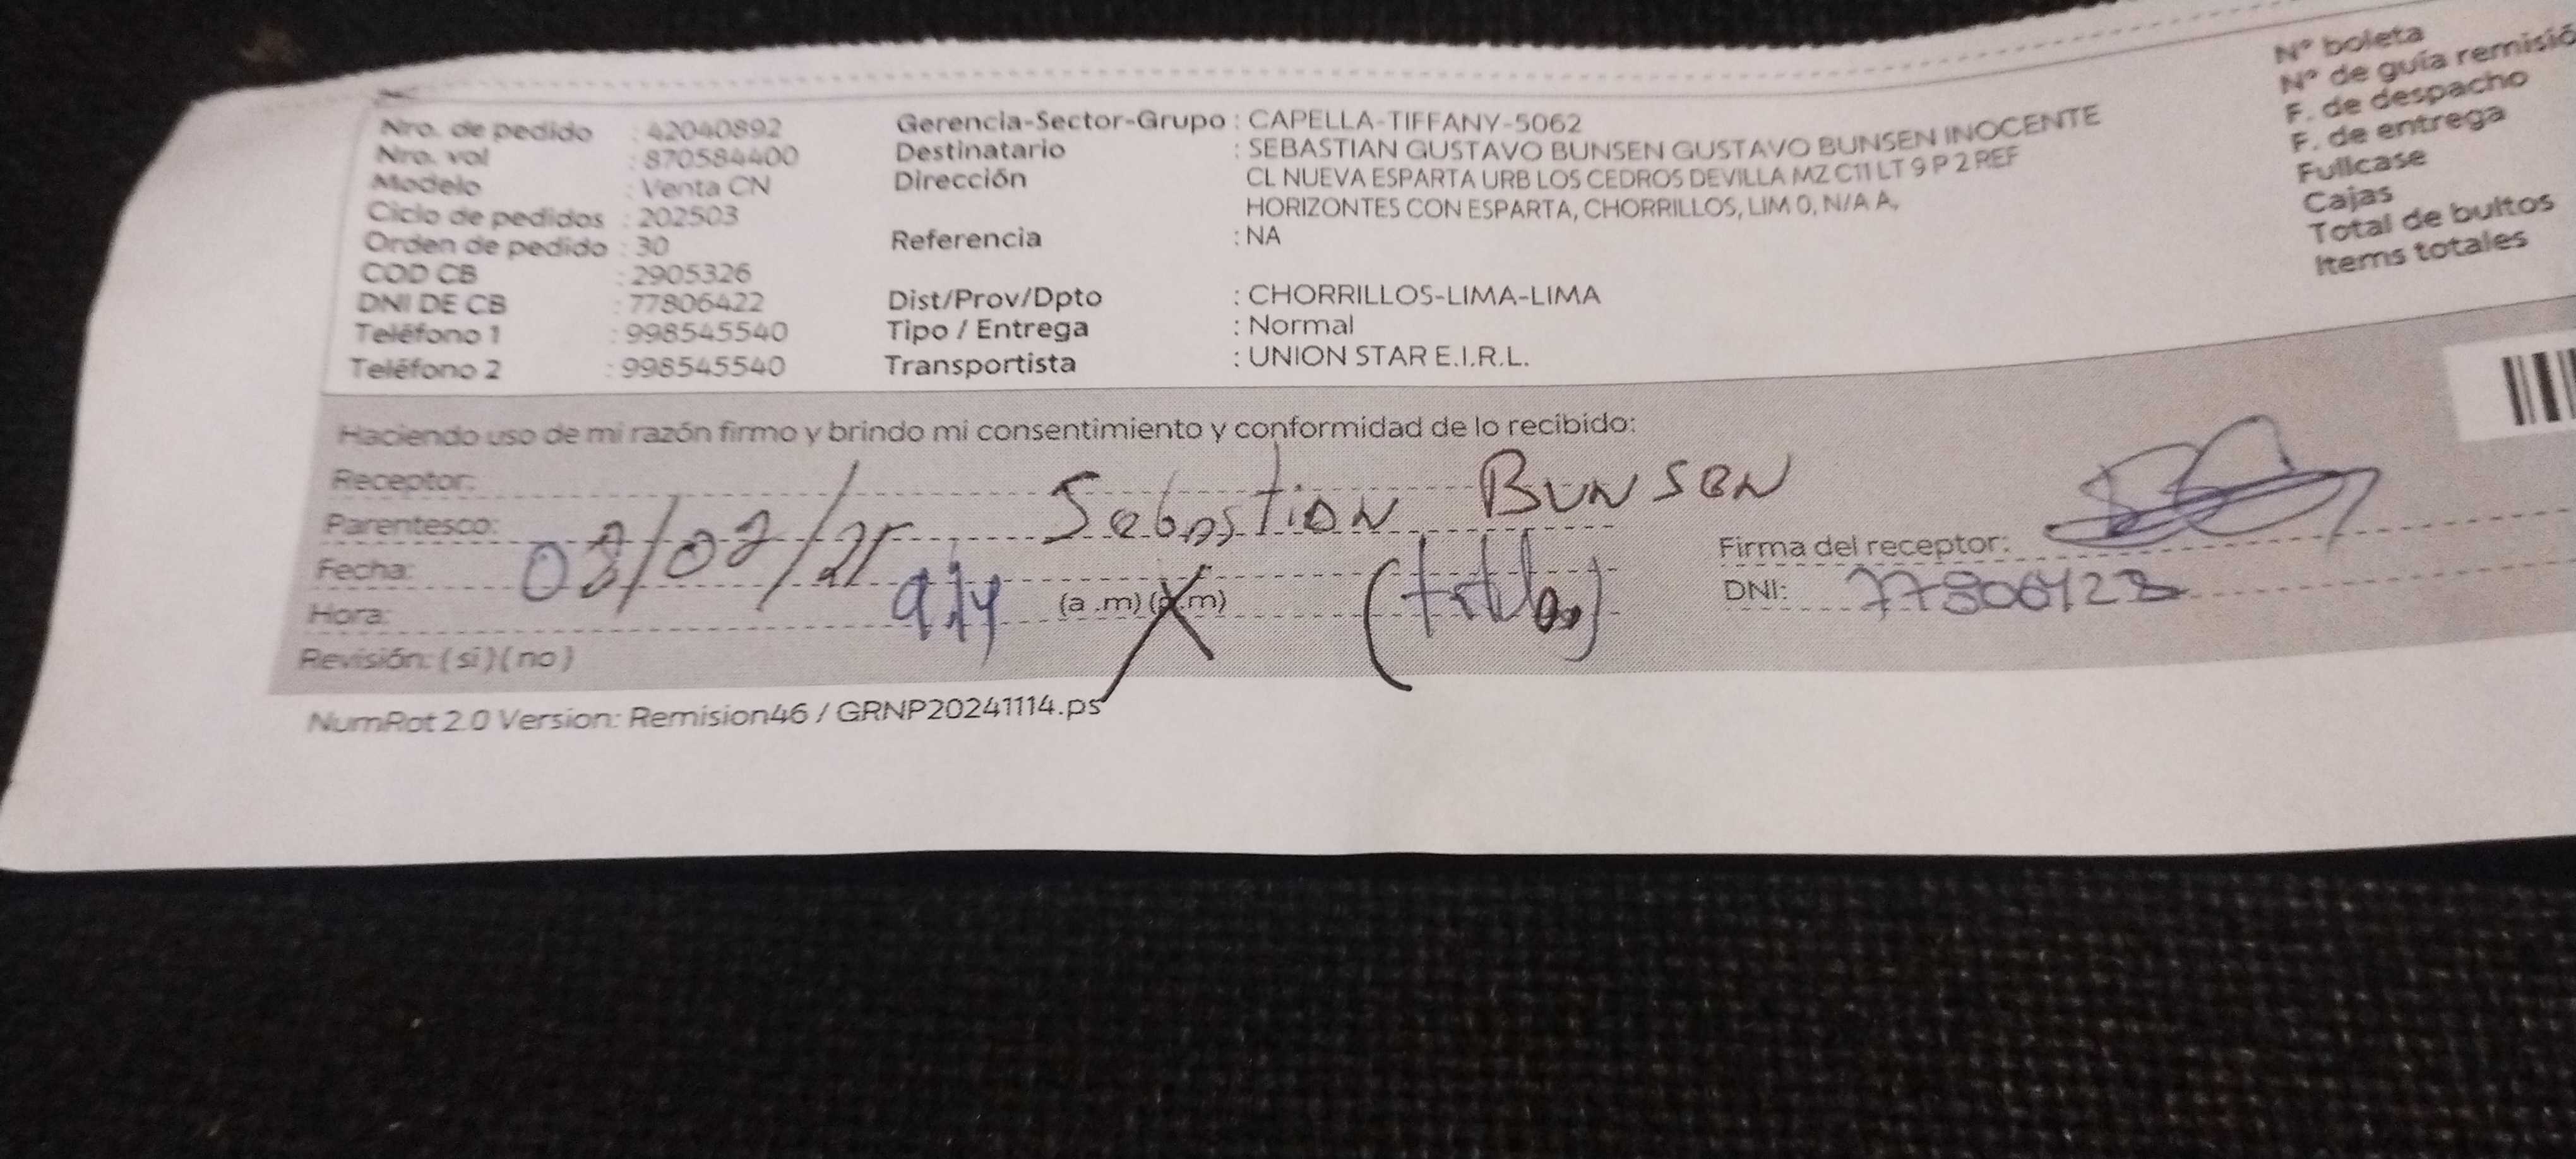 Nro. de pedido : 42040892
Nro. vol : 870584400
Modelo : Venta CN
Ciclo de pedidos : 202503
Orden de pedido : 30
COD CB : 2905326
DNI DE CB : 77806422
Teléfono 1 : 998545540
Teléfono 2 : 998545540
Gerencia-Sector-Grupo : CAPELLA-TIFFANY-5062
Destinatario : SEBASTIAN GUSTAVO BUNSEN GUSTAVO BUNSEN INOCENTE
Dirección CL NUEVA ESPARTA URB LOS CEDROS DEVILLA MZ C11 LT 9 P 2 REF
HORIZONTES CON ESPARTA, CHORRILLOS, LIM 0, N/A A,
Referencia : NA
Dist/Prov/Dpto : CHORRILLOS-LIMA-LIMA
Tipo / Entrega : Normal
Transportista : UNION STAR E.I.R.L.
N° boleta
N° de guía remisió
F. de despacho
F. de entrega
Fullcase
Cajas
Total de bultos
Items totales
Haciendo uso de mi razón firmo y brindo mi consentimiento y conformidad de lo recibido:
Receptor: Sebastian BUNSEN
Parentesco:
Fecha:
Hora: (a .m) (p.m)
Revisión: ( si ) ( no )
Firma del receptor:
DNI:
NumRot 2.0 Version: Remision46 / GRNP20241114.ps